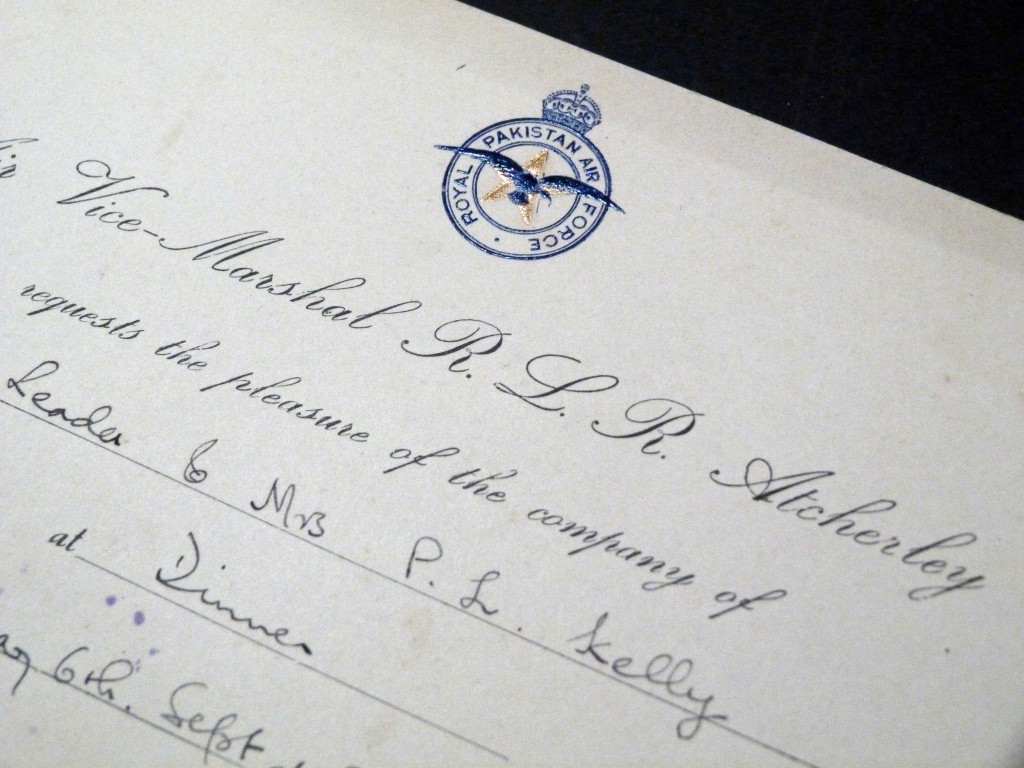 ROYAL PAKISTAN AIR FORCE
Vice-Marshal R. L. R. Atcherley
requests the pleasure of the company of
Leader & Mrs P. L. Kelly
at Dinner
6th. Sept